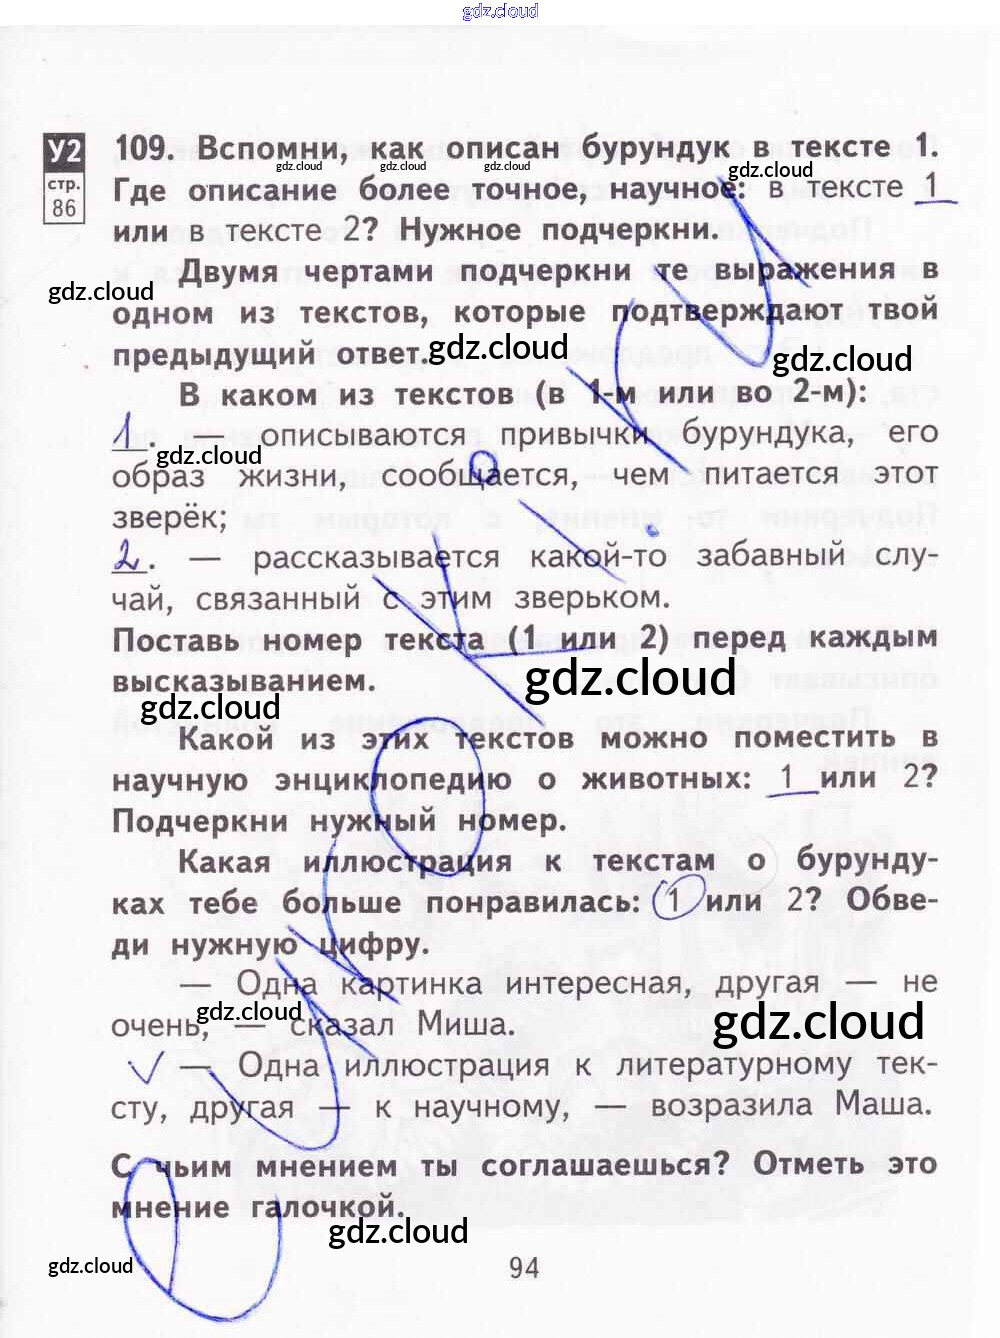 gdz.cloud
У2
стр.
86
109. Вспомни, как описан бурундук в тексте 1.
gdz.cloud
gdz.cloud gdz.cloud gdz.cloud
Где описание более точное, научное: в тексте 1
или в тексте 2? Нужное подчеркни.
Двумя чертами подчеркни те выражения в
gdz.cloud gdz.cloud
одном из текстов, которые подтверждают твой
предыдущий ответ.
gdz.cloud gdz.cloud
В каком из текстов (в 1-м или во 2-м):
1 — описываются привычки бурундука, его
gdz.cloud
образ жизни, сообщается, чем питается этот
зверёк;
2. — рассказывается какой-то забавный слу-
чай, связанный с этим зверьком.
Поставь номер текста (1 или 2) перед каждым
высказыванием.
gdz.cloud gdz.cloud
Какой из этих текстов можно поместить в
научную энциклопедию о животных: 1 или 2?
Подчеркни нужный номер.
Какая иллюстрация к текстам о бурунду-
ках тебе больше понравилась: 1 или 2? Обве-
ди нужную цифру.
— Одна картинка интересная, другая — не
gdz.cloud gdz.cloud
очень, — сказал Миша.
— Одна иллюстрация к литературному тек-
сту, другая — к научному, — возразила Маша.
С чьим мнением ты соглашаешься? Отметь это
мнение галочкой.
gdz.cloud
gdz.cloud
94